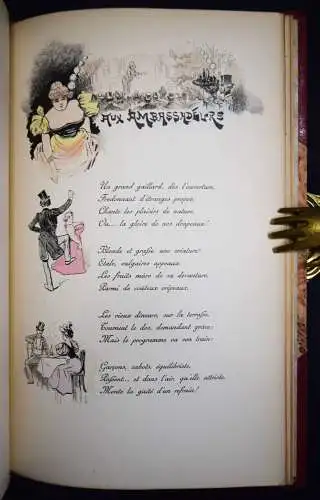 AUX AMBASSADEURS
Un grand gaillard, dès l'ouverture,
Fredonnant d'étranges propos,
Chante les plaisirs de nature,
Ou... la gloire de nos drapeaux!
Blonde et grasse une créature
Etale, vulgaires appeaux
Les fruits mûrs de sa devanture,
Parmi de coûteux oripeaux.
Les vieux dîneurs, sur la terrasse,
Tournent le dos, demandant grâce;
Mais le programme va son train:
Garçons, cabots, équilibriste,
Passent... et dans l'air, qu'elle attriste,
Monte la gaîté d'un refrain!